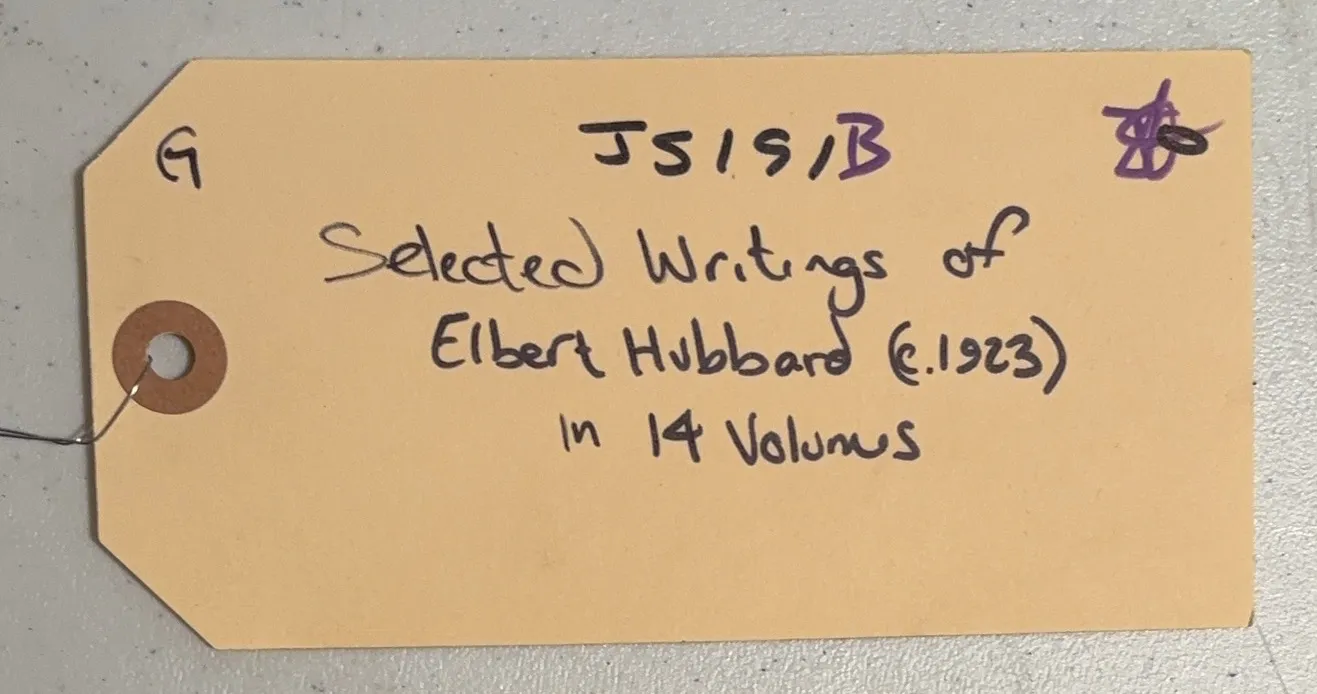 G
JS191B
Selected Writings of
Elbert Hubbard (c.1923)
in 14 Volumes